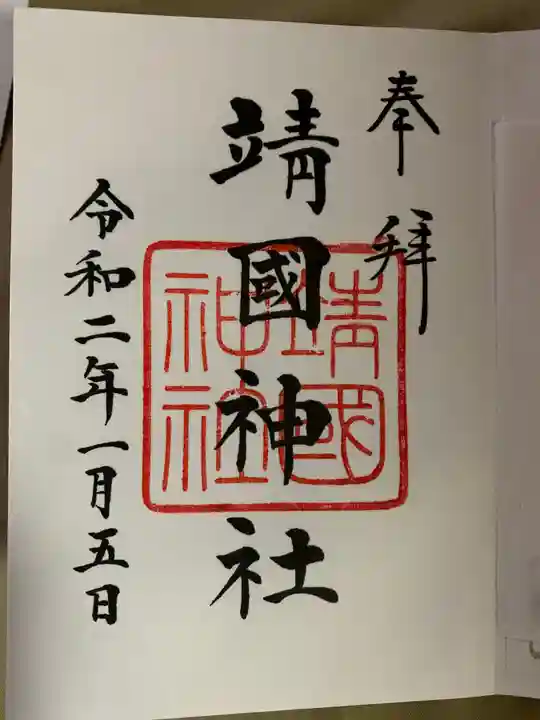 奉拝
靖國神社
靖國
神社
令和二年一月五日